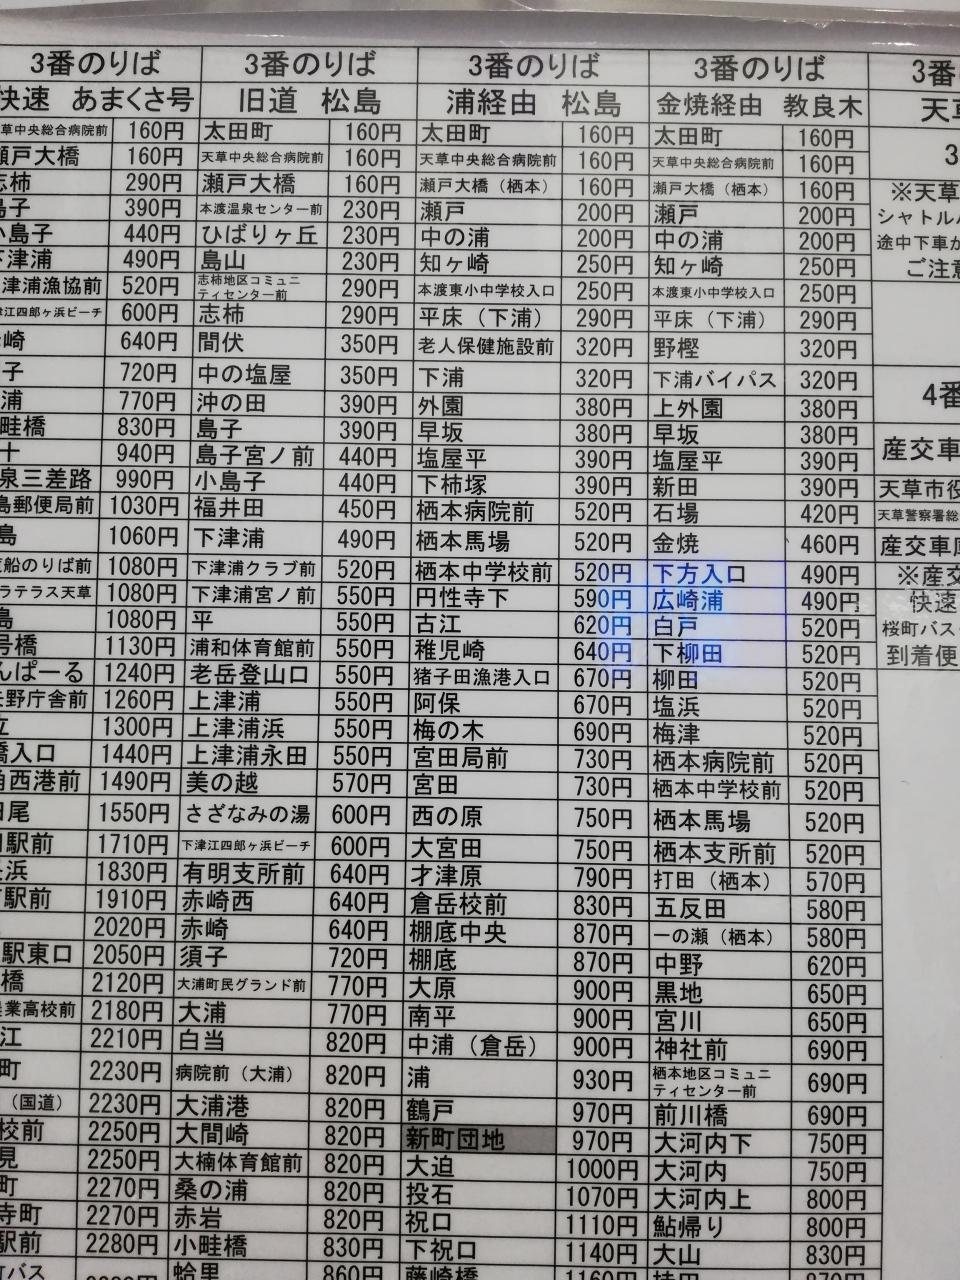 3番のりば 3番のりば 3番のりば 3番のりば 3番
快速 あまくさ号 旧道 松島 浦経由 松島 金焼経由 教良木
草中央総合病院前 160円 太田町 160円 太田町 160円 太田町 160円
瀬戸大橋 160円 天草中央総合病院前 160円 天草中央総合病院前 160円 天草中央総合病院前 160円 3
志柿 290円 瀬戸大橋 160円 瀬戸大橋(栖本) 160円 瀬戸大橋(栖本) 160円 ※天草
島子 390円 本渡温泉センター前 230円 瀬戸 200円 瀬戸 200円 シャトル
小島子 440円 ひばりヶ丘 230円 中の浦 200円 中の浦 200円 途中下車が
下津浦 490円 島山 230円 知ヶ崎 250円 知ヶ崎 250円 ご注意
津浦漁協前 520円 志柿地区コミュニ
ティセンター前 290円 本渡東小中学校入口 250円 本渡東小中学校入口 250円
江四郎ヶ浜ビーチ 600円 志柿 290円 平床(下浦) 290円 平床(下浦) 290円
崎 640円 間伏 350円 老人保健施設前 320円 野樫 320円
子 720円 中の塩屋 350円 下浦 320円 下浦バイパス 320円 4番
浦 770円 沖の田 390円 外園 380円 上外園 380円
畦橋 830円 島子 390円 早坂 380円 早坂 380円 産交車
十 940円 島子宮ノ前 440円 塩屋平 390円 塩屋平 390円
泉三差路 990円 小島子 440円 下柿塚 390円 新田 390円 天草市役
島郵便局前 1030円 福井田 450円 栖本病院前 520円 石場 420円 天草警察署
島 1060円 下津浦 490円 栖本馬場 520円 金焼 460円 産交車庫
船のりば前 1080円 下津浦クラブ前 520円 栖本中学校前 520円 下方入口 490円 ※産交
ラテラス天草 1080円 下津浦宮ノ前 550円 円性寺下 590円 広崎浦 490円 快速
島 1080円 平 550円 古江 620円 白戸 520円 桜町バス
号橋 1130円 浦和体育館前 550円 稚児崎 640円 下柳田 520円 到着便
んぱーる 1240円 老岳登山口 550円 猪子田漁港入口 670円 柳田 520円
野庁舎前 1260円 上津浦 550円 阿保 670円 塩浜 520円
立 1300円 上津浦浜 550円 梅の木 690円 梅津 520円
橋入口 1440円 上津浦永田 550円 宮田局前 730円 栖本病院前 520円
角西港前 1490円 美の越 570円 宮田 730円 栖本中学校前 520円
田尾 1550円 さざなみの湯 600円 西の原 750円 栖本馬場 520円
駅前 1710円 下津江四郎ヶ浜ビーチ 600円 大宮田 750円 栖本支所前 520円
浜 1830円 有明支所前 640円 才津原 790円 打田(栖本) 570円
駅前 1910円 赤崎西 640円 倉岳校前 830円 五反田 580円
2020円 赤崎 640円 棚底中央 870円 一の瀬(栖本) 580円
駅東口 2050円 須子 720円 棚底 870円 中野 620円
橋 2120円 大浦町民グランド前 770円 大原 900円 黒地 650円
業高校前 2180円 大浦 770円 南平 900円 宮川 650円
江 2210円 白当 820円 中浦(倉岳) 900円 神社前 690円
町 2230円 病院前(大浦) 820円 浦 930円 栖本地区コミュニ
ティセンター前 690円
(国道) 2230円 大浦港 820円 鶴戸 970円 前川橋 690円
校前 2250円 大間崎 820円 新町団地 970円 大河内下 750円
見 2250円 大楠体育館前 820円 大迫 1000円 大河内 750円
町 2270円 桑の浦 820円 投石 1070円 大河内上 800円
寺町 2270円 赤岩 820円 祝口 1110円 鮎帰り 800円
駅前 2280円 小畦橋 830円 下祝口 1140円 大山 830円
バス 蛤里 860円 藤崎橋 1160円